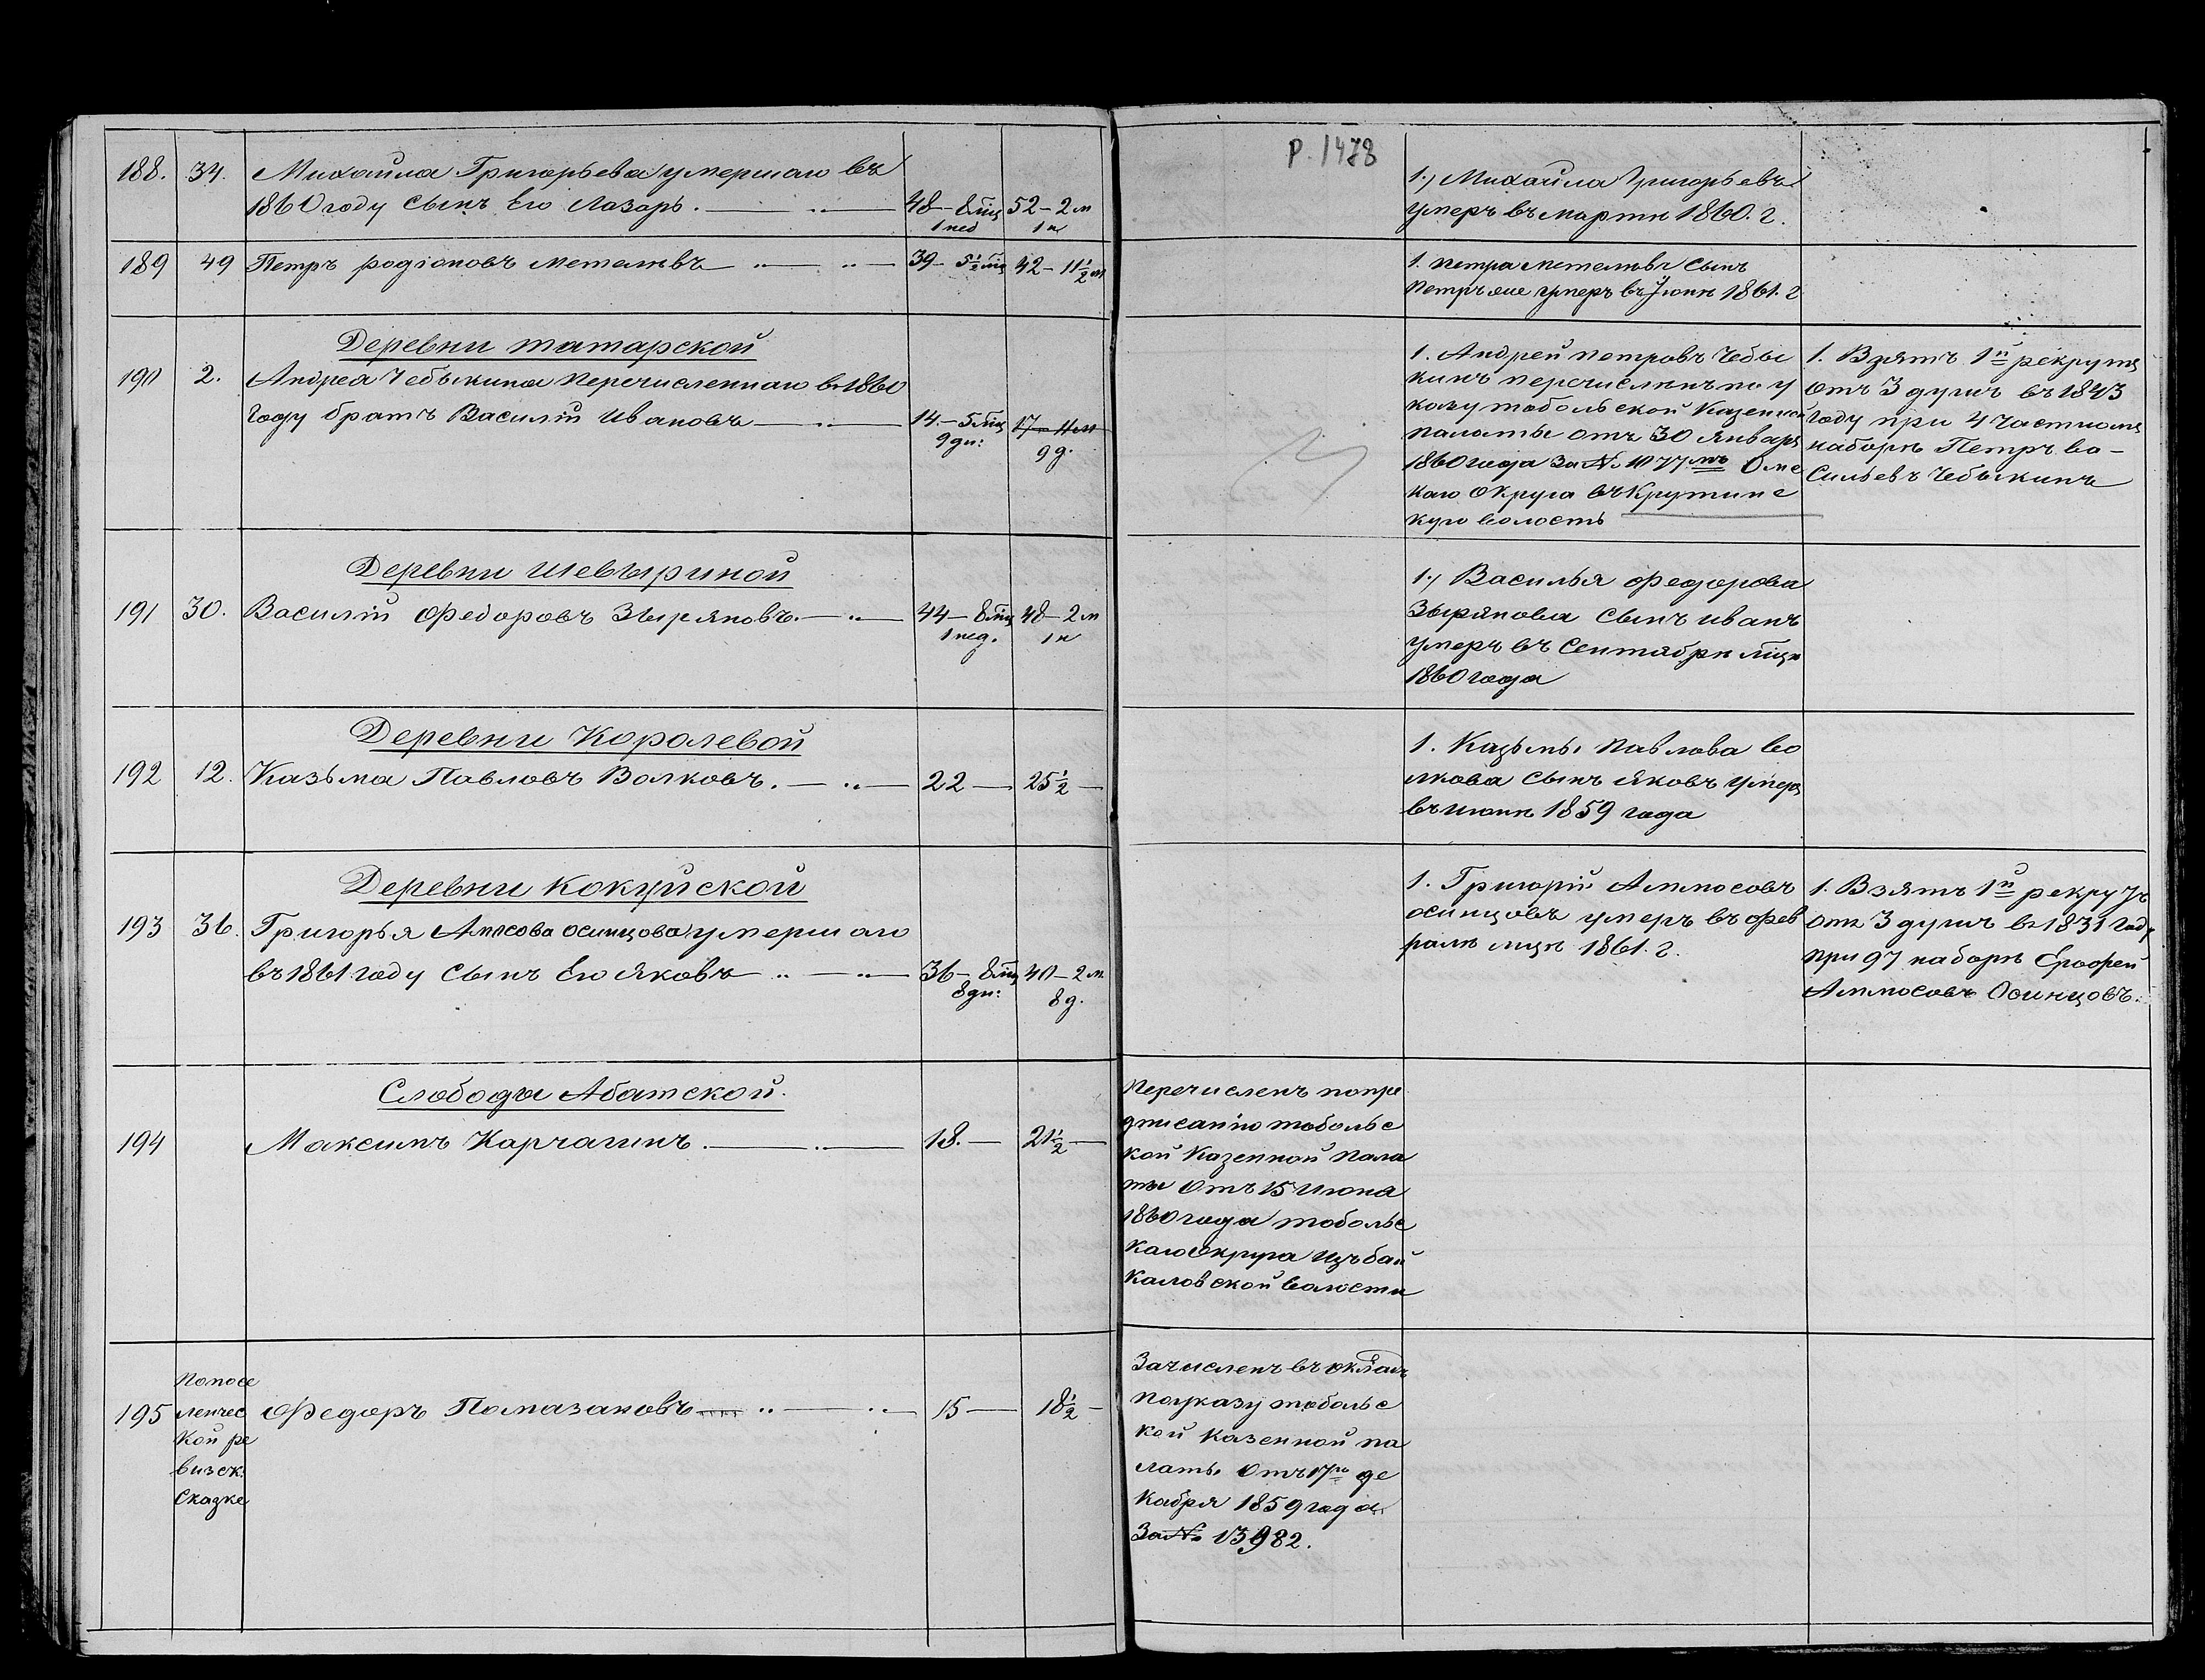 188. 34. Михайла Григорьева умершаго въ
1860 году сынъ Его Лазарь. 48 - 8 мц 52 - 2 м
1 нед 1 н
189 49 Петръ родіоновъ Метелевъ 39 - 5½ мц 42 - 11½ м
Деревни татарской
190 2. Андрея Чебыкина перечисленнаго въ 1860
году братъ Василій Ивановъ 14. - 5 мц 17 - 11 м
9 дн: 9 д.
Деревни шевыриной
191 30. Василій Федоровъ Зыряновъ. 44 - 8 мц 48 - 2 м
1 нед. 1 н
Деревни Королевой
192 12. Казьма Павловъ Волковъ. 22 25½
Деревни кокуйской
193 36. Григорья Амосова осинцова умершаго
въ 1861 году сынъ Его яковъ 36 - 8 мц 40 - 2 м.
8 дн: 8 д.
Слободы Абатской.
194 Максимъ Карчагинъ. 18. 21½
Попосе
195 ленчес Федоръ Помазановъ 15 18½
кой ре
визск.
Сказке
Р. 1478
1.) Михайла Григорьевъ
умеръ въ марте 1860. г.
1. петра метелева сынъ
Петръ же умеръ въ Іюне 1861. г
1. Андрей петровъ Чебы
кинъ перечисленъ по у
казу тобольской Казенной
палаты отъ 30 января
1860 года за № 1077мъ Омс
каго округа въ Крутинс
кую волость
1. Взятъ 1й рекрутъ
отъ 3 душъ въ 1843
году при 4 частномъ
наборе Петръ ва-
сильевъ Чебыкинъ
1.) Василья федорова
Зырянова сынъ иванъ
умеръ въ Сентябре мце
1860 года
1. Казьмы павлова во
лкова сынъ яковъ умеръ
въ июне 1859 года
1. Григорій Аммосовъ
осинцовъ умеръ въ фев
рале мце 1861. г.
1. Взятъ 1й рекрутъ
отъ 3 душъ въ 1831 году
при 97 наборе Ерофей
Аммосовъ Осинцовъ.
перечисленъ по пре
дписанію тобольс
кой Казенной пала
ты Отъ 15 июня
1860 года тобольс
каго округа изъ бай
каловской волости
Зачисленъ въ окладъ
по указу тобольс
кой казенной па
латы Отъ 17го де
кабря 1859 года
За № 13982.